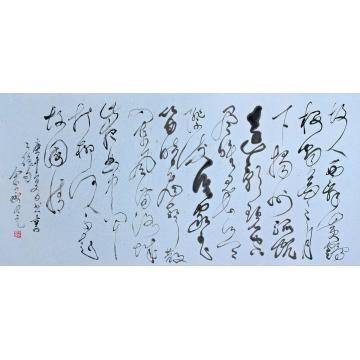 故人西辞黄鹤
楼烟花三月
下扬州孤帆
远影碧空
尽唯见长江天
际流谁家玉
笛暗飞声散
入春风满洛城
此夜曲中闻
折柳何人不起
故园情